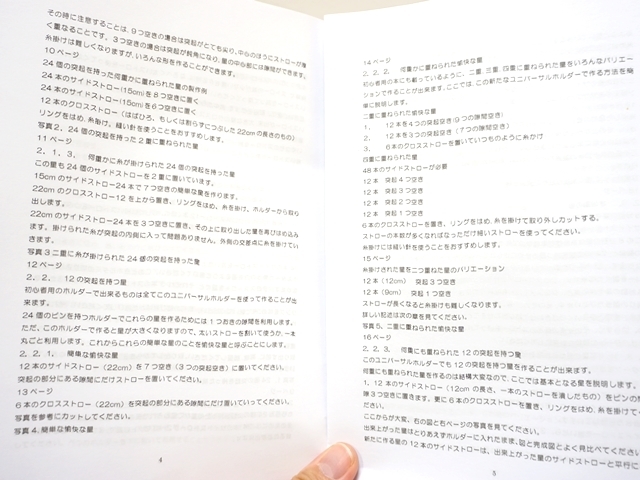 その時に注意することは、９つ空きの場合は突起がとても尖り、中心のほうにストローが細
く重なることです。３つ空きの場合は突起が鈍角になり、星の中心部には隙間ができます。
糸掛けは難しくなりますが、いろんな形を作ることができます。
１０ページ
２４個の突起を持った何重かに重ねられた星の製作例
２４本のサイドストロー(15cm)を８つ空きに置く
２４本のサイドストロー(15cm)を６つ空きに置く
１２本のクロスストロー（はばひろ、もしくは割らずにつぶした２２cmの長さのもの）
リングをはめ、糸掛け、縫い針を使うことをおすすめします。
写真２，２４個の突起を持った２重に重ねられた星
１１ページ
２、１、３、　何重かに糸が掛けられた２４個の突起を持った星
この星も２４個のサイドストローを２重に置いています。
15cmのサイドストロー２４本で７つ空きの簡単な星を作ります。
22cmのクロスストロー１２を上から置き、リングをはめ、糸を掛け、ホルダーから取り
出します。
22cmのサイドストロー２４本を３つ空きに置き、その上に取り出した星を再びはめ込み
ます。掛けられた糸が突起の内側に入って問題ありません。外側の交差点に糸を掛けてい
きます。
写真３二重に糸が掛けられた２４個の突起を持った星
１２ページ
２、２、　１２の突起を持つ星
初心者用のホルダーで出来るものは全てこのユニバーサルホルダーを使って作ることが出
来ます。
２４個のピンを持つホルダーでこれらの星を作るためには１つおきの隙間を利用します。
ただ、このホルダーで作ると星が大きくなりますので、太いストローを割いて使うか、一本
丸ごと利用します。これからこれらの簡単な星のことを愉快な星と呼ぶことにします。
２、２、１、　簡単な愉快な星
１２本のサイドストロー（22cm）を７つ空き（３つの突起空き）に置いてください。
突起の部分にある隙間にだけストローを置いてください。
１３ページ
６本のクロスストロー（22cm）を突起の部分にある隙間にだけ置いていってください。
写真を参考にカットしてください。
写真４，簡単な愉快な星
4
１４ページ
２、２、２、　何重かに重ねられた愉快な星
初心者用の本にも載っているように、二重、三重、四重に重ねられた星をいろんなバリエー
ションで作ることが出来ます。ここでは、この新たなユニバーサルホルダーで作る方法を簡
単に説明します。
二重に重ねられた愉快な星
１、　１２本を４つの突起空き（９つの隙間空き）
２、　１２本を３つの突起空き（７つの隙間空き）
３、　６本のクロスストローを置いていつものように糸かけ
四重に重ねられた星
４８本のサイドストローが必要
１２本　突起４つ空き
１２本　突起３つ空き
１２本　突起２つ空き
１２本　突起１つ空き
６本のクロスストローを置き、リングをはめ、糸を掛けて取り外しカットする。
ストローの本数が多くなればなっただけ細いストローを使ってください。
糸掛けには縫い針を使うことをおすすめします。
１５ページ
糸掛けされた星を二つ重ねた星のバリエーション
１２本（12cm）　突起３つ空き
１２本（9cm）　突起１つ空き
ストローが長くなると糸掛けも難しくなります。
詳しい記述は次の章を見てください。
写真５，二重に重ねられた愉快な星
１６ページ
２、２、３、　何重にも重ねられた１２の突起を持つ星
このユニバーサルホルダーでも１２の突起を持つ星を作ることが出来ます。
何重にも重ねられた星を作るのは結構大変なので、ここでは基本となる星を説明します。
１，１２本のサイドストロー（12cmの長さ、一本のストローを潰したもの）をピンの
隙３つ空きに置きます。更に６本のクロスストローを置き、リングをはめ、糸を掛けて
ださい。
ここからが大変。右の図と右ページの写真を見てください。
出来上がった星はとりあえずホルダーに入れたまま、図と完成図とよく見比べてください
新たに作る星の１２本のサイドストローは、出来上がった星のサイドストローと平行に
5